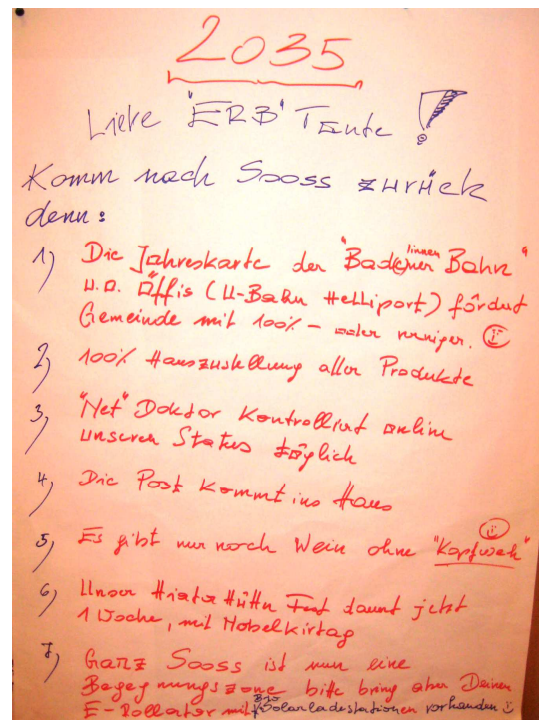 2035
Liebe "ERB" Tante !
Komm nach Sooss zurück
denn:
1) Die Jahreskarte der "Badenerinnen Bahn"
u.a. Öffis (U-Bahn Helliport) fördert
Gemeinde mit 100% - oder weniger.
2) 100% Hauszustellung aller Produkte
3) "Net" Doktor Kontrolliert online
unseren Status täglich
4) Die Post kommt ins Haus
5) Es gibt nur noch Wein ohne "Kopfweh"
6) Unser Hiata Hüttn Fest dauert jetzt
1 Woche, mit Nobelkirtag
7) Ganz Sooss ist nun eine
Begegnungszone bitte bring aber Deinen
E-Rollator mit Solarladestationen vorhanden